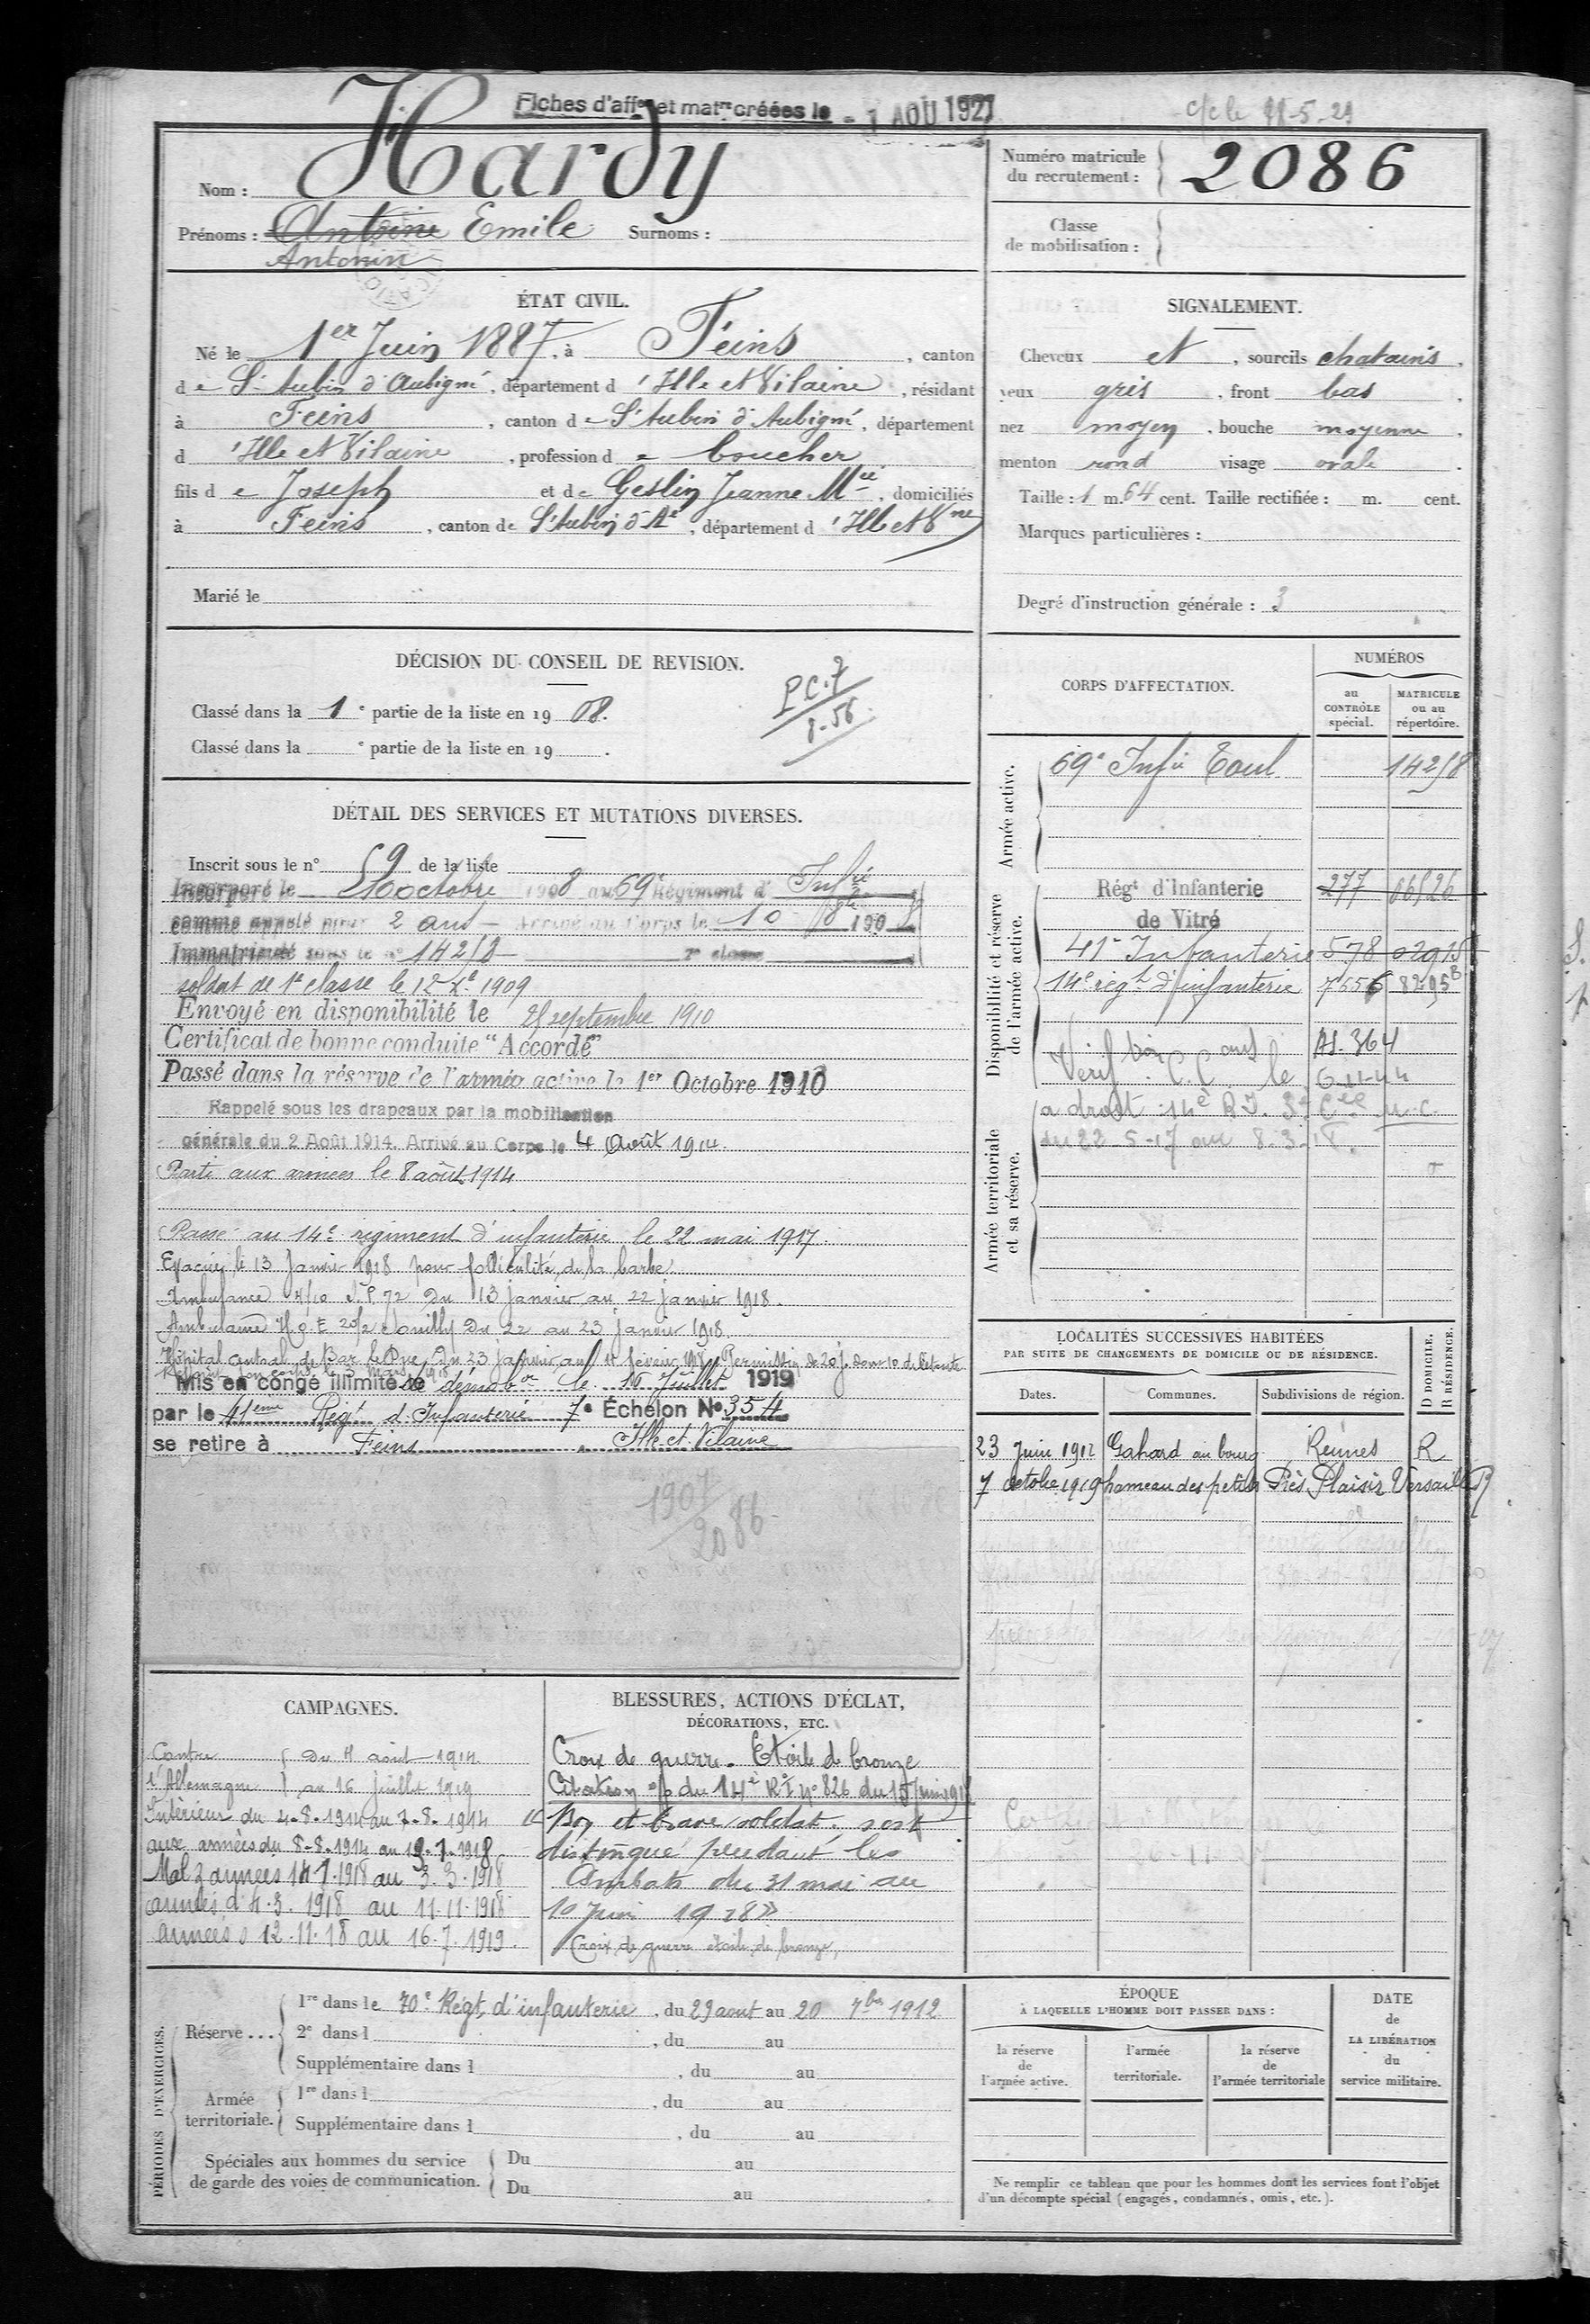 Fiches d'aff.on et mat.re créées le - 1 AOU 1927
Nom : Hardy
Prénoms : Antoine Emile Surnoms :
Antonin
Numéro matricule du recrutement : 2086
Classe de mobilisation :
ÉTAT CIVIL.
Né le 1er Juin 1887, à Feins, canton
de St Aubin d'Aubigné, département d'Ille et Vilaine, résidant
à Feins, canton de St Aubin d'Aubigné, département
d'Ille et Vilaine, profession de boucher
fils de Joseph et de Geslin Jeanne Mie, domiciliés
à Feins, canton de St Aubin d'Aé, département d'Ille et Vne
Marié le
SIGNALEMENT.
Cheveux et, sourcils chatains,
yeux gris, front bas,
nez moyen, bouche moyenne,
menton rond visage ovale.
Taille : 1 m. 64 cent. Taille rectifiée : m. cent.
Marques particulières :
Degré d'instruction générale : 3
DÉCISION DU CONSEIL DE REVISION.
Classé dans la 1e partie de la liste en 1908.
Classé dans la e partie de la liste en 19 .
DÉTAIL DES SERVICES ET MUTATIONS DIVERSES.
Inscrit sous le n° 59 de la liste
Incorporé le 10 octobre 1908 au 69e Régiment d'Infie
comme appelé pour 2 ans Arrivé au Corps le 10 8bre 1908
Immatriculé sous le n° 14258 2e classe
soldat de 1e classe le 12 Xe 1909
Envoyé en disponibilité le 25 septembre 1910
Certificat de bonne conduite "Accordé"
Passé dans la réserve de l'armée active le 1er Octobre 1910
Rappelé sous les drapeaux par la mobilisation
générale du 2 Août 1914. Arrivé au Corps le 4 Août 1914.
Parti aux armées le 8 août 1914
Passé au 14e régiment d'infanterie le 22 mai 1917.
Evacué le 13 Janvier 1918 pour folliculite de la barbe
Ambulance 4/10 S.P. 72 Du 13 janvier au 22 janvier 1918.
Ambulance H.O.E 20/2 Souilly Du 22 au 23 janvier 1918.
Hôpital central de Bar le Duc Du 23 janvier au février 1918 Permission de 20 j. dont 10 de détente
Mis en congé illimité de démobon le 16 Juillet 1919
par le 41eme Régt d'Infanterie 7e Échelon N° 354
se retire à Feins, Ille et Vilaine
1907
2086
CORPS D'AFFECTATION.
NUMÉROS
au CONTRÔLE spécial.
MATRICULE ou au répertoire.
Armée active.
69e Infie Toul 14258
Disponibilité et réserve de l'armée active.
Régt d'Infanterie de Vitré 277 06526
41e Infanterie 578 02915
14e régt d'infanterie 7656 8295
A droit 14e R.I.
du 22-5-17 au 8-3-18.
Armée territoriale et sa réserve.
LOCALITÉS SUCCESSIVES HABITÉES
PAR SUITE DE CHANGEMENTS DE DOMICILE OU DE RÉSIDENCE.
Dates. Communes. Subdivisions de région. D DOMICILE. R RÉSIDENCE.
23 Juin 1912 Gahard au bourg Rennes R
7 octobre 1919 hameau des petits Prés Plaisir Versailles R
CAMPAGNES.
Contre l'Allemagne { Du 4 août 1914
au 16 juillet 1919
Intérieur du 4-8-1914 au 7-8-1914
aux armées du 8-8-1914 au 13-1-1918
Mal armées 14 1.1918 au 3.3.1918
armées d 4.3.1918 au 11.11.1918
Armées 12.11.18 au 16.7.1919.
BLESSURES, ACTIONS D'ÉCLAT,
DÉCORATIONS, ETC.
Croix de guerre. Etoile de bronze
Citation du 14e RI n° 826 du 15 juin 1918
"Bon et brave soldat. s'est
distingué pendant les
combats du 31 mai au
10 Juin 1918"
Croix de guerre étoile de bronze,
PÉRIODES D'EXERCICES.
Réserve ...
1re dans le 70e Régt d'infanterie, du 29 aout au 20 7bre 1912
2e dans l , du au
Supplémentaire dans l , du au
Armée territoriale.
1re dans l , du au
Supplémentaire dans l , du au
Spéciales aux hommes du service
de garde des voies de communication.
Du au
Du au
ÉPOQUE
À LAQUELLE L'HOMME DOIT PASSER DANS :
la réserve de l'armée active.
l'armée territoriale.
la réserve de l'armée territoriale
DATE de LA LIBÉRATION du service militaire.
Ne remplir ce tableau que pour les hommes dont les services font l'objet
d'un décompte spécial (engagés, condamnés, omis, etc.).